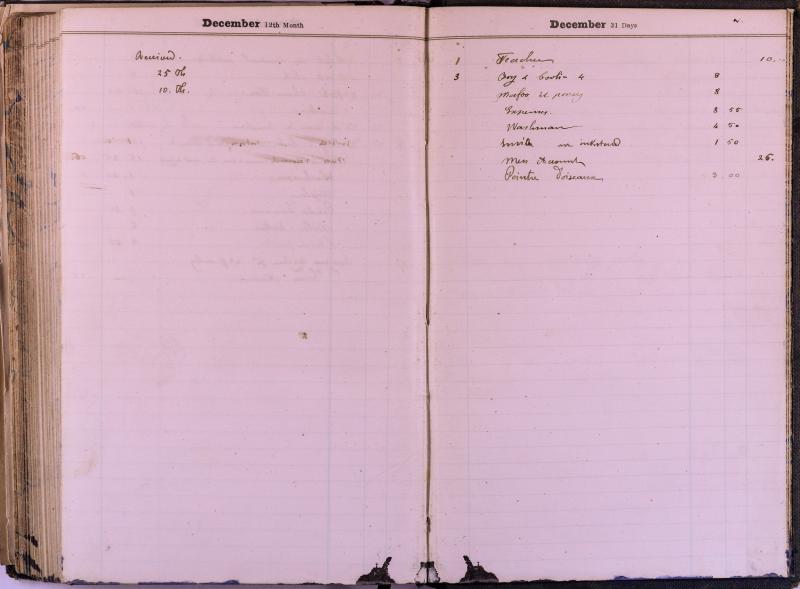 December 12th Month
Received.
25 Th
10. Th.
December 31 Days
1 Teacher 10.
3 Boy & Coolie 4 8
Mafoo & poney 8
Expenses. 8 55
Washman 4 50
on inkstand 1 50
Mess Account 26.
Peintre d'oiseaux 3 00